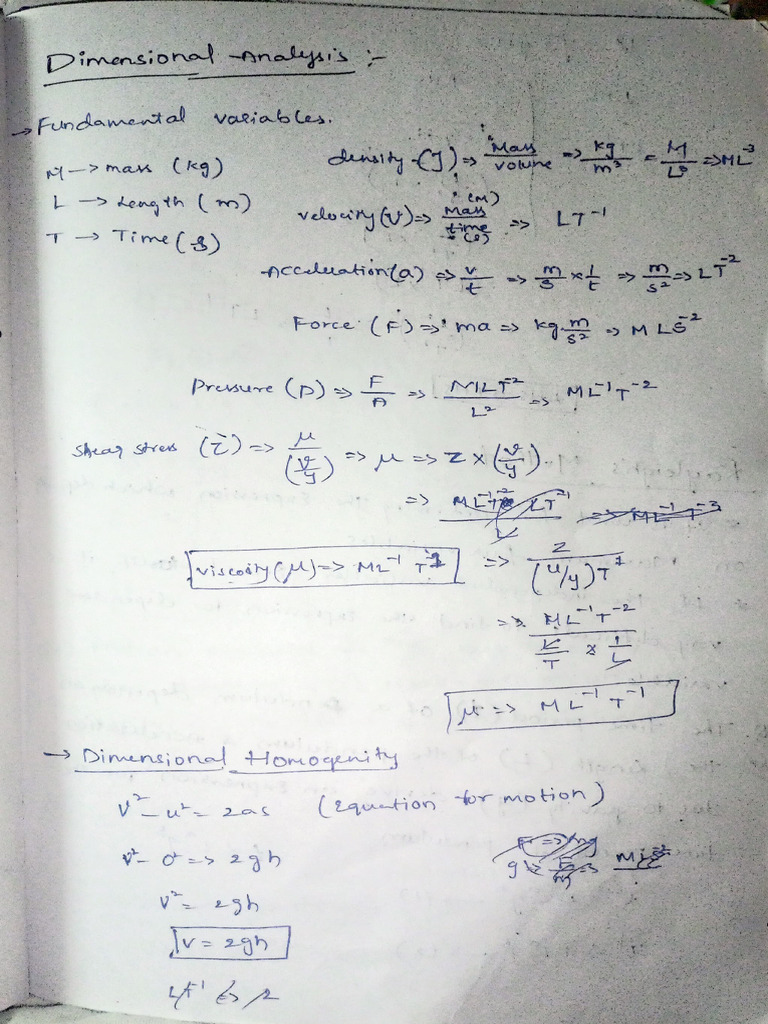 Dimensional Analysis :-
→ Fundamental variables.
M → mass (kg)
L → Length (m)
T → Time (s)
density (ρ) => Mass/volume => kg/m³ = M/L³ => ML⁻³
velocity (v) => Mass (m)/time (s) => LT⁻¹
Acceleration (a) => v/t => m/s × 1/t => m/s² => LT⁻²
Force (F) => ma => kg m/s² => MLS⁻²
Pressure (P) => F/A => MLT⁻²/L² => ML⁻¹T⁻²
Shear stress (τ) => μ/(v/y) => μ => τ × (v/y).
=>
viscosity (μ) => ML⁻¹ T⁻¹
=> τ/(u/y)T¹
=> ML⁻¹T⁻²/(L/T × 1/L)
μ => ML⁻¹T⁻¹
→ Dimensional Homogenity
v² - u² = 2as (Equation for motion)
v² - 0² => 2gh
v² = 2gh
v = 2gh